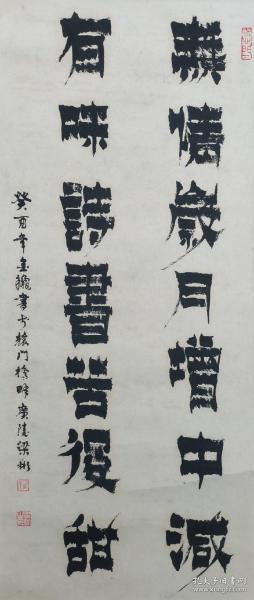 無情歲月增中減
有味詩書苦後甜
癸酉年金龍書於核門橋畔廣陵梁彬
孔夫子旧书网